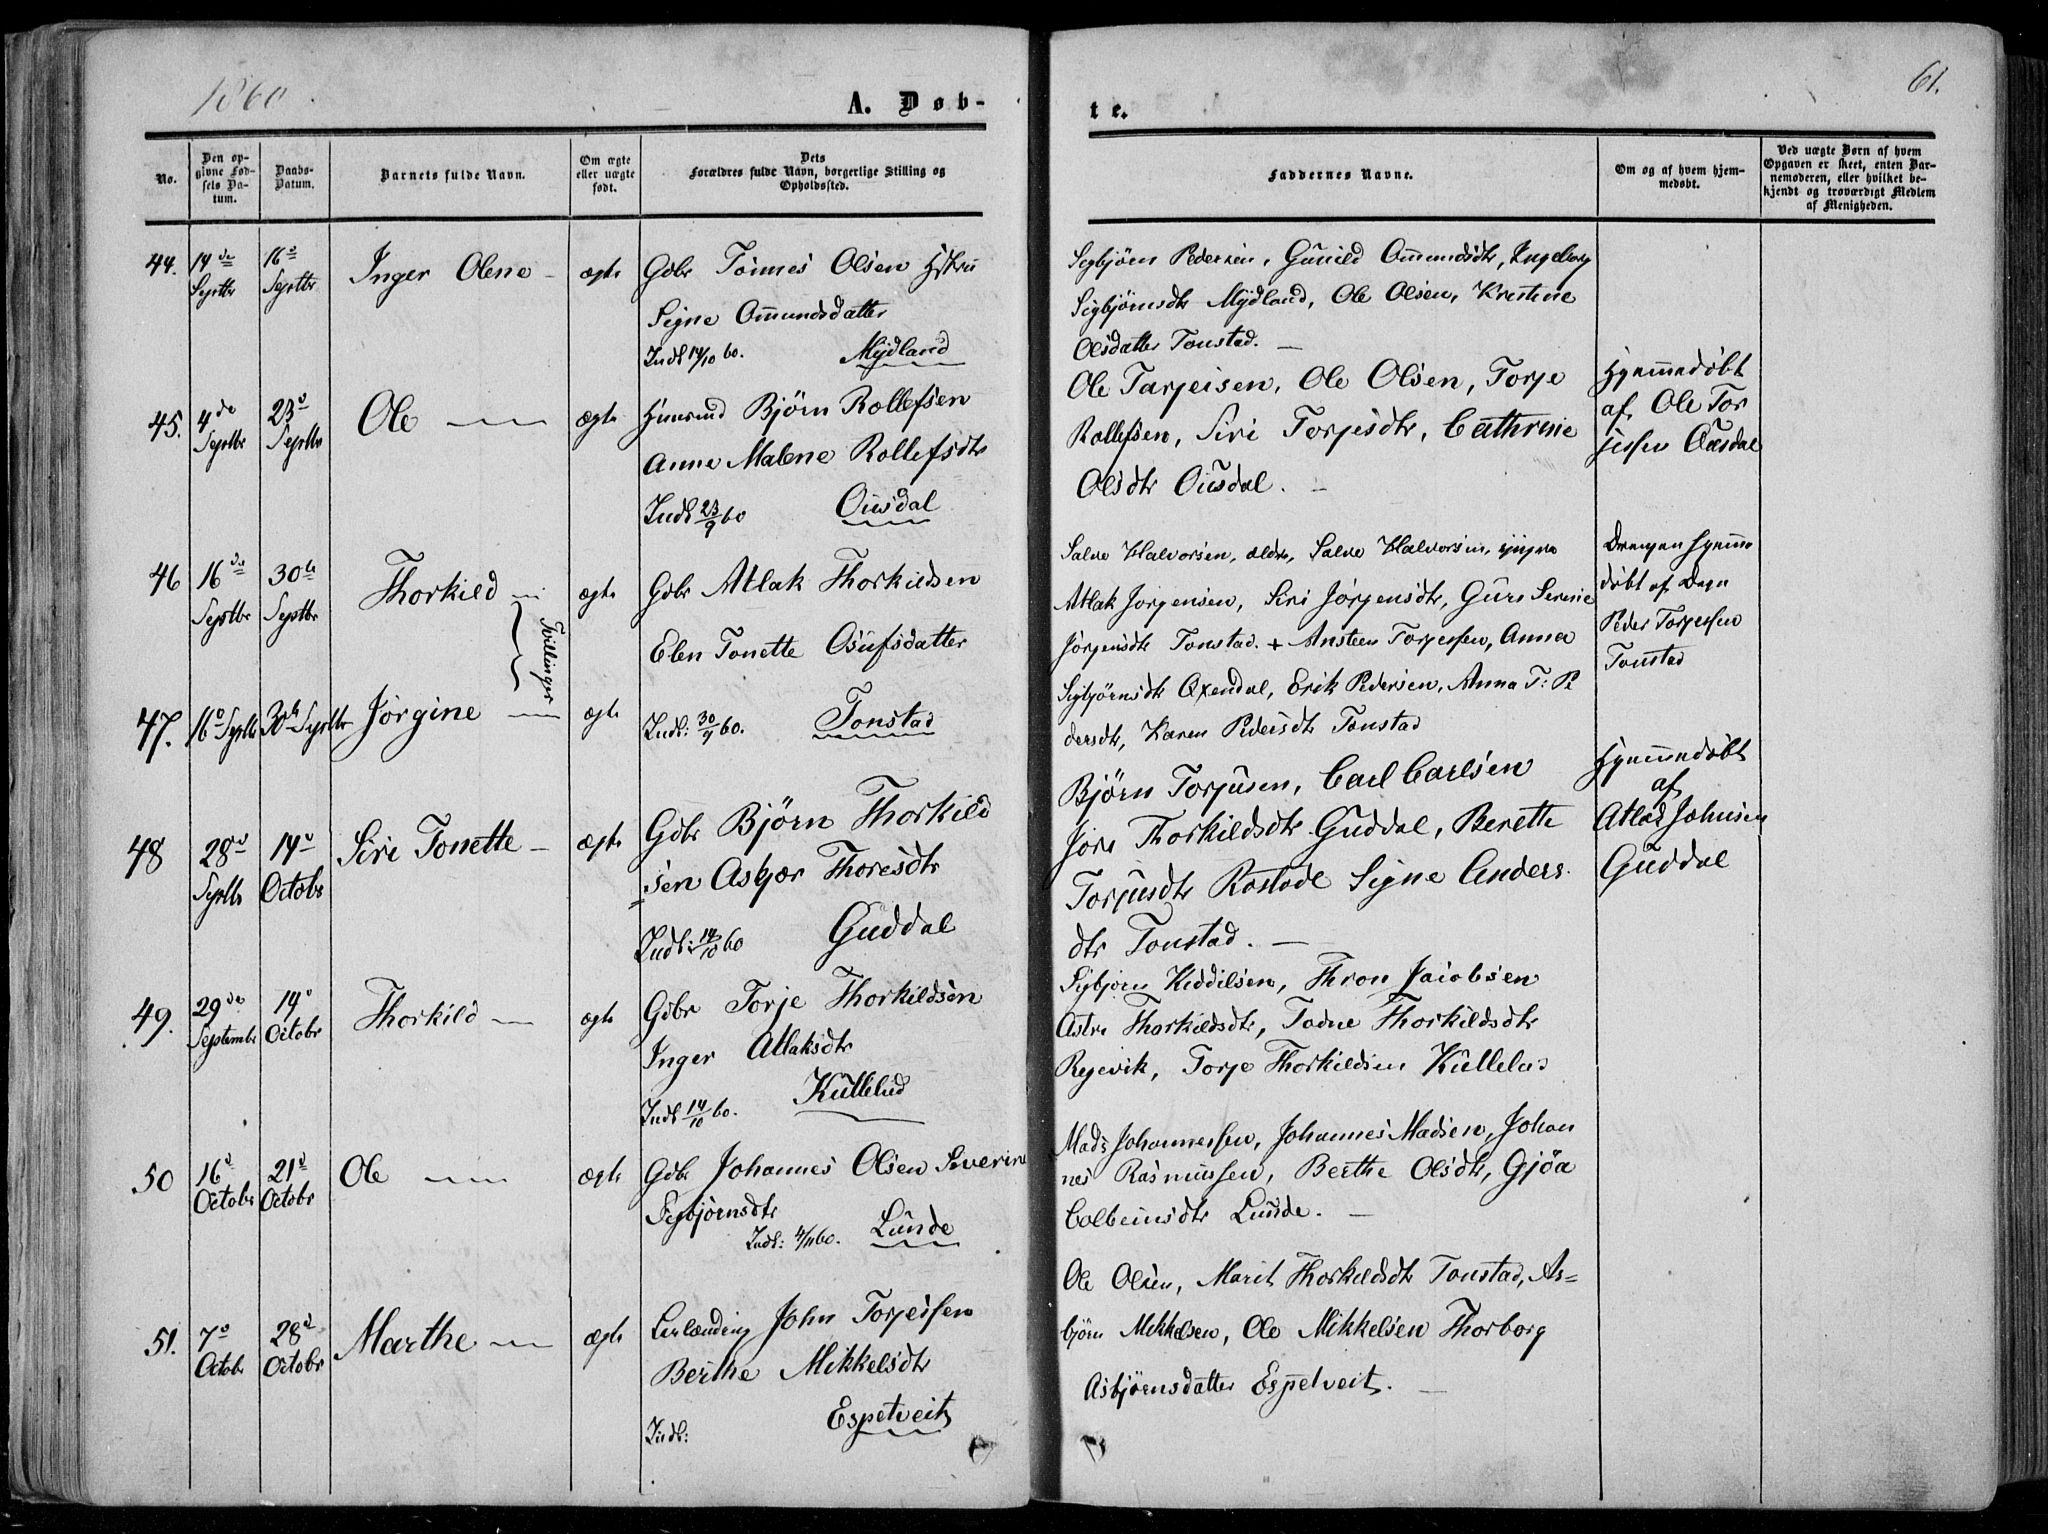 1860.
A. Døb-
te.
61.
No.
Den op-
givne Fød-
sels Da-
tum.
Daabs-
Datum.
Barnets fulde Navn.
Om ægte
eller uægte
født.
Dets
Forældres fulde Navn, borgerlige Stilling og
Opholdssted.
Faddernes Navne.
Om og af hvem hjem-
medøbt.
Ved uægte Børn af hvem
Opgaven er skeet, enten Bar-
nemoderen, eller hvilket be-
kjendt og troværdigt Medlem
af Menigheden.
44. 14de Septbr 16d Septbr Inger Olene – ægte
Gdbr Tønnes Olsen Hstru
Signe Ommundsdatter
Indb 14/10 60. Mydland
Sigbjørn Pedersen, Gunild Ommundsdtr, Ingeborg
Sigbjørnsdtr Mydland, Ole Olsen, Kristine
Olsdatter Tonstad. –
45. 4de Septbr 23d Septbr Ole – ægte
Huusmd Bjørn Rollefsen
Anne Malene Rollefsdtr
Indb 23/9 60 Ousdal
Ole Tarjeisen, Ole Olsen, Torje
Rollefsen, Siri Torjesdtr, Cathrine
Olsdtr Ousdal. –
Hjemmedøbt
af Ole Tor
jesen Ousdal
46 16de Septbr 30te Septbr Thorkild – ægte
Tvillinger
Gdbr Atlak Thorkildsen
Elen Tonette Osufsdatter
Salve Halvorsen, ældre, Salve Halvorsen, yngre
Atlak Jørgensen, Siri Jørgensdtr, Guro Serine
Jørgensdtr Tonstad. + Ansteen Torjessen, Anna
Sigbjørnsdtr Oxendal, Erik Pedersen, Anna T: Pe
dersdtr, Karen Pedersdtr Tonstad
Drengen hjemme
døbt af
Peder Torjessen
Tonstad
47. 16d Septbr 30te Septbr Jørgine – ægte
Indb: 30/9 60. Tonstad
48 28d Septbr 14d Octobr Siri Tonette – ægte
Gdbr Bjørn Thorkild
sen Asbjør Thoresdtr
Indb: 14/10 60 Guddal
Bjørn Torjusen, Carl Carlsen
Jore Thorkildsdtr Guddal, Berette
Torjusdtr Rostøde Signe Anders
dtr Tonstad. –
Hjemmedøbt
af
Atlak Johnsen
Guddal
49. 29de Septembr 14d Octobr Thorkild – ægte
Gdbr Torje Thorkildsen
Inger Atlaksdtr
Indb 14/10 60. Kvtlelid
Sigbjørn Kiddilsen, Thron Jacobsen
Astri Thorkildsdtr, Todne Thorkildsdtr
Regevik, Torje Thorkildsen
50 16d Octobr 21d Octobr Ole – ægte
Gdbr Johannes Olsen Severine
Sigbjørnsdtr
Indb: 4/11 60. Lunde
Mads Johannessen, Johannes Madsen, Johan
nes Rasmussen, Berthe Olsdtr, Gjøa
Colbeinsdtr Lunde. –
51. 7d Octobr 28d Octobr Marthe – ægte
Leilænding John Torjessen
Berthe Mikkelsdtr
Indb: Espetveit
Ole Olsen, Marit Thorkildsdtr Tonstad, As=
bjørn Mikkelsen, Ole Mikkelsen Thorborg
Asbjørnsdatter Espetveit. –